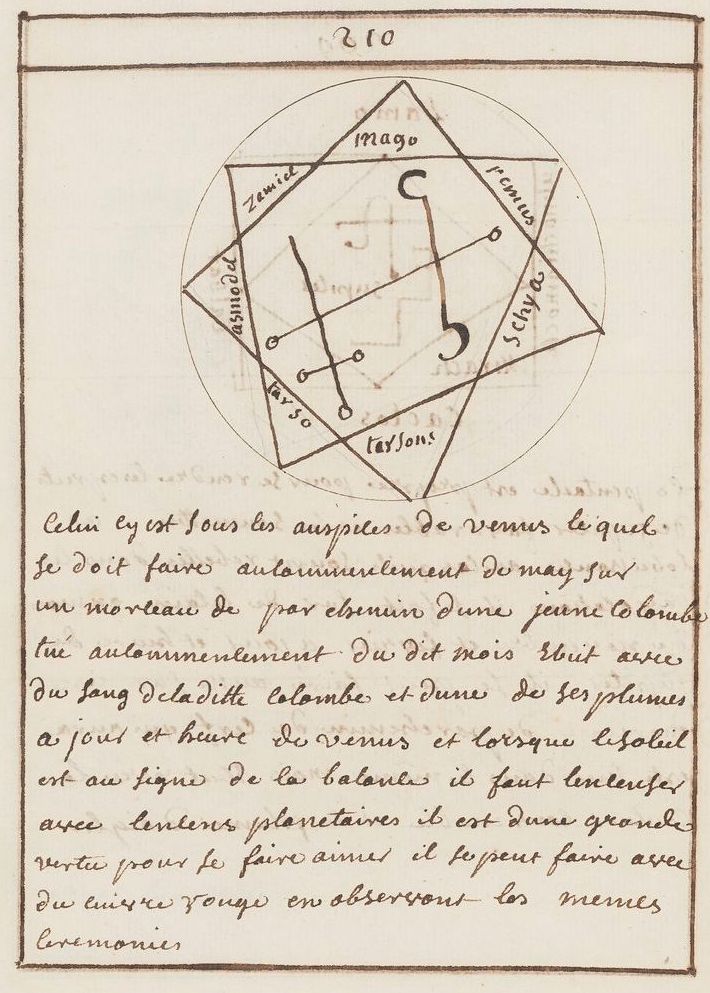 210
mago
zamiel
remus
asmodel
schya
tarso
tarsons
Celui cy est sous les auspices de venus lequel
se doit faire aucommencement de may sur
un morceau de par chemin dune jeune Colombe
tué aucommencement du dit mois Ebut avec
du sang deladitte colombe et dune de ses plumes
a jour et heure de venus et lorsque le soleil
est au signe de la balance il faut lencenser
avec lencens planetaires il est dune grande
vertu pour se faire aimer il se peut faire avec
du cuivre rouge en observont les memes
ceremonies